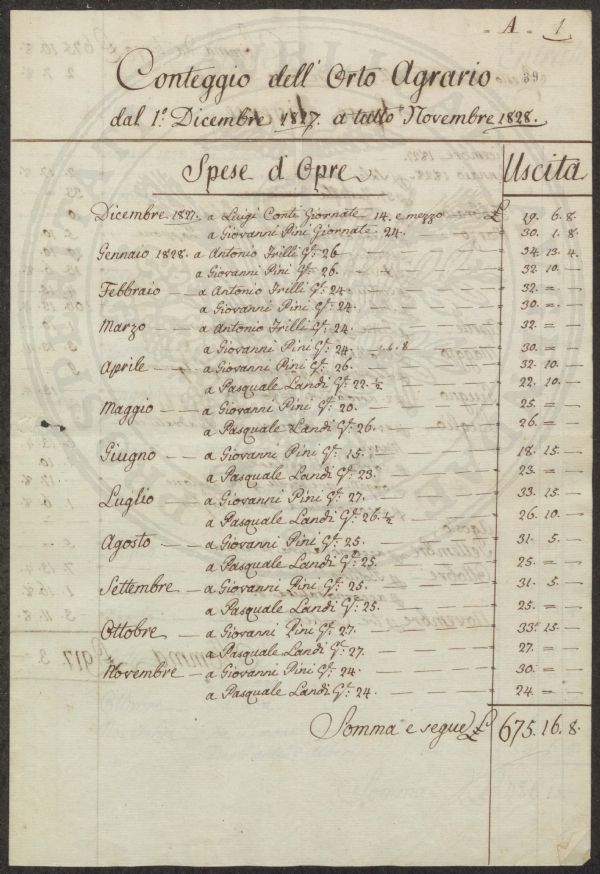 - A - 1
39
Conteggio dell' Orto Agrario
dal 1.º Dicembre 1827. a tutto Novembre 1828.
Spese d'Opre Uscita
Dicembre 1827. a Luigi Conti Giornate 14. e mezzo £ 19. 6. 8.
a Giovanni Pini Giornate 24. 30. 1. 8
Gennaio 1828. a Antonio Frilli G.te 26 34. 13. 4
a Giovanni Pini G.te 26. 32. 10. —
Febbraio a Antonio Frilli G.te 24. 32. = —
a Giovanni Pini G.te 24. 30. = —
Marzo a Antonio Frilli G.te 24. 32. = —
a Giovanni Pini G.te 24. 30. = —
Aprile a Giovanni Pini G.te 26. 32. 10. —
a Pasquale Landi G.te 22. ½ 22. 10. —
Maggio a Giovanni Pini G.te 20. 25. = —
a Pasquale Landi G.te 26. 26. = —
Giugno a Giovanni Pini G.te 15. 18. 15. —
a Pasquale Landi G.te 23. 23. = —
Luglio a Giovanni Pini G.te 27. 33. 15. —
a Pasquale Landi G.te 26. ½ 26. 10. —
Agosto a Giovanni Pini G.te 25. 31. 5. —
a Pasquale Landi G.te 25. 25. = —
Settembre a Giovanni Pini G.te 25. 31. 5. —
a Pasquale Landi G.te 25. 25. = —
Ottobre a Giovanni Pini G.te 27. 33. 15. —
a Pasquale Landi G.te 27. 27. = —
Novembre a Giovanni Pini G.te 24. 30. = —
a Pasquale Landi G.te 24. 24. = —
Somma e segue £ 675. 16. 8.